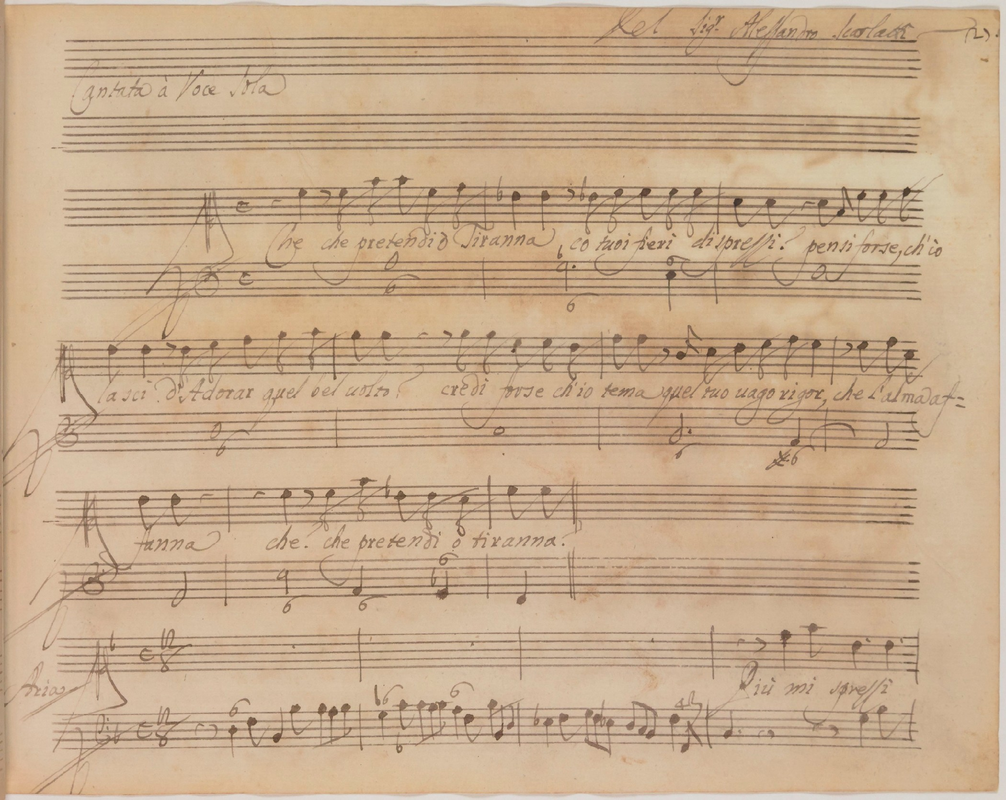 Del Sig.r Alessandro Scarlatti
Cantata à Voce Sola
Che che pretendi ò Tiranna co tuoi fieri dispressi? pensi forse, ch'io
lasci d'Adorar quel bel uolto? credi forse ch'io tema quel tuo uago rigor, che l'alma af=
fanna che? che pretendi ò tiranna?
Aria
Più mi spressi